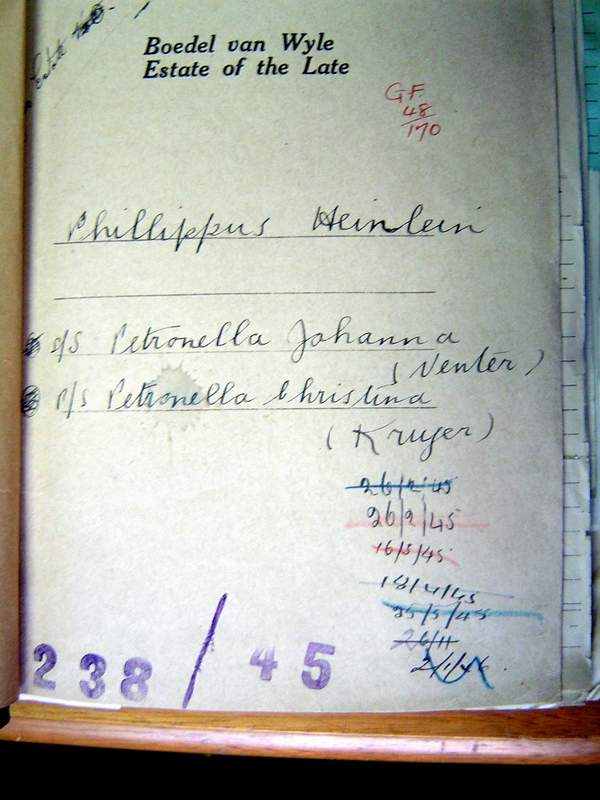 Boedel van Wyle
Estate of the Late
G.F.
48
170
Phillippus Heinlein
s/s Petronella Johanna
(Venter)
p/s Petronella Christina
(Kruger)
26/2/45
26/2/45
16/3/45
18/4/45
25/5/45
26/11
2/1/46.
238/45